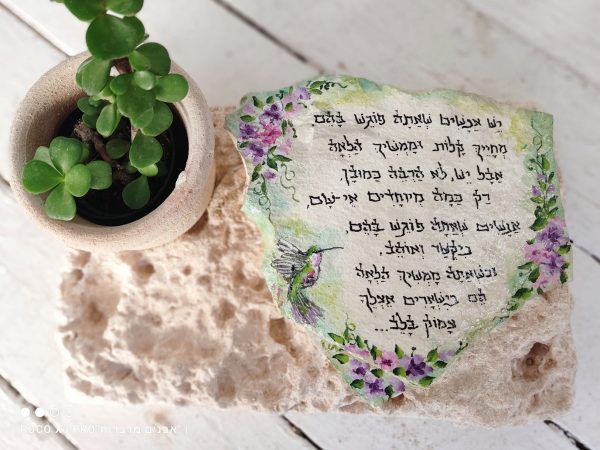 יש אנשים שאתה פוגש בהם,
מחייך קלות וממשיך הלאה
אבל יש, לא הרבה כמובן,
רק כמה מיוחדים אי-שם,
אנשים שאתה פוגש בהם,
ביקשר ואוהב,
וכשאתה ממשיך הלאה
הם נישארים אצלך
עמוק בלב...
POCO X3 PRO אבנים מדברות